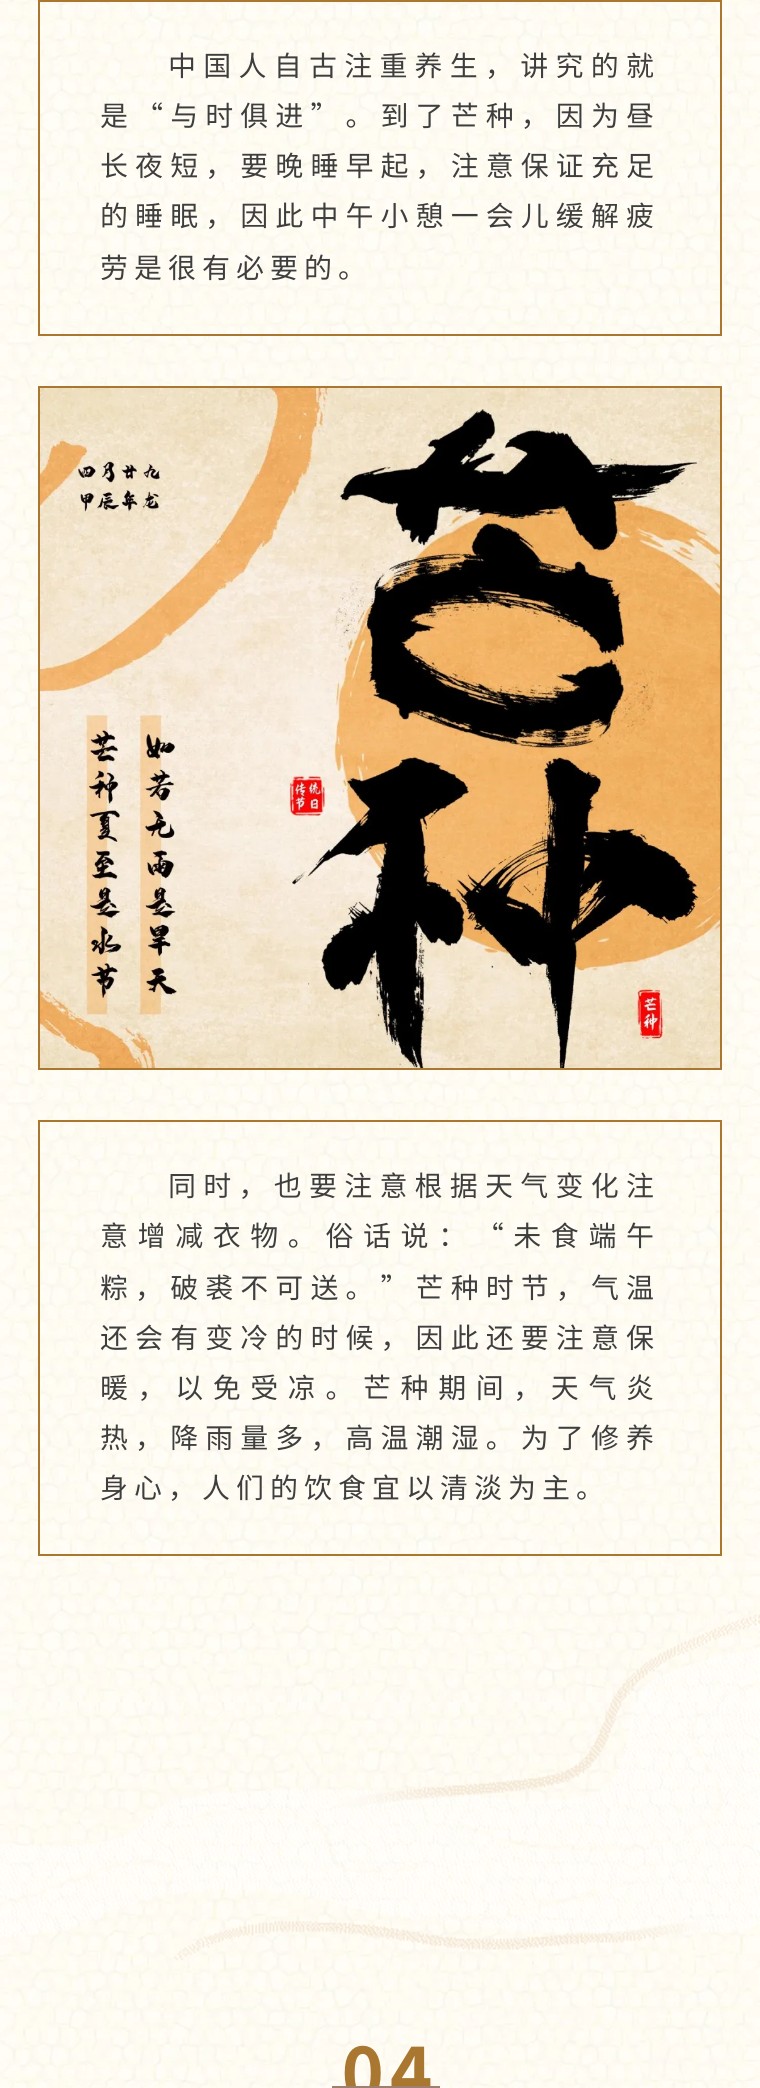 中国人自古注重养生，讲究的就
是“与时俱进”。到了芒种，因为昼
长夜短，要晚睡早起，注意保证充足
的睡眠，因此中午小憩一会儿缓解疲
劳是很有必要的。
四月廿九
甲辰年龙
芒种
如若无雨是旱天
芒种夏至是水节
传统
节日
芒种
同时，也要注意根据天气变化注
意增减衣物。俗话说：“未食端午
粽，破裘不可送。”芒种时节，气温
还会有变冷的时候，因此还要注意保
暖，以免受凉。芒种期间，天气炎
热，降雨量多，高温潮湿。为了修养
身心，人们的饮食宜以清淡为主。
04